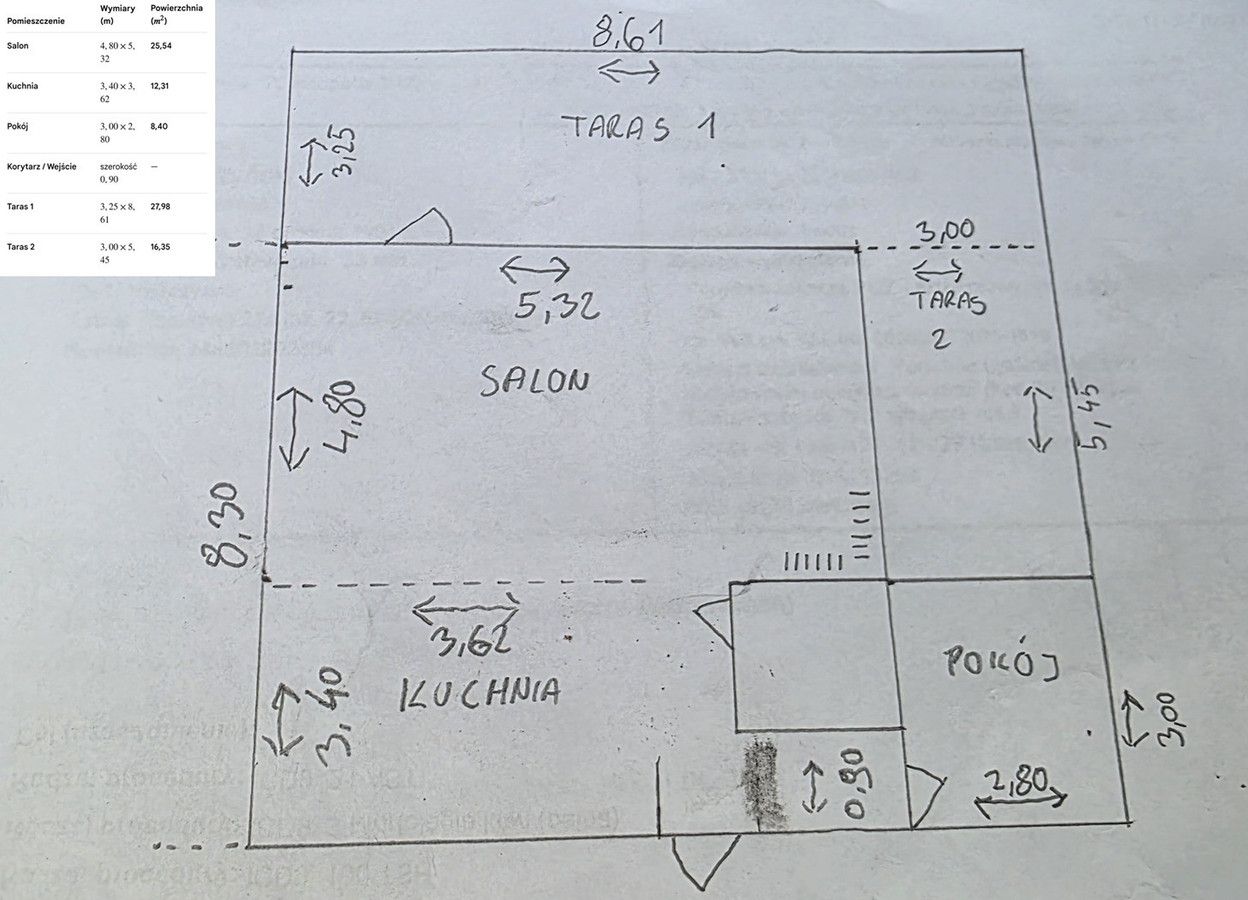 Pomieszczenie Wymiary (m) Powierzchnia (m²)
Salon 4,80 × 5,32 25,54
Kuchnia 3,40 × 3,62 12,31
Pokój 3,00 × 2,80 8,40
Korytarz / Wejście szerokość 0,90 —
Taras 1 3,25 × 8,61 27,98
Taras 2 3,00 × 5,45 16,35
8,61
TARAS 1
3,25
3,00
TARAS
2
5,32
SALON
4,80
5,45
8,30
3,62
KUCHNIA
3,40
POKÓJ
3,00
0,90
2,80